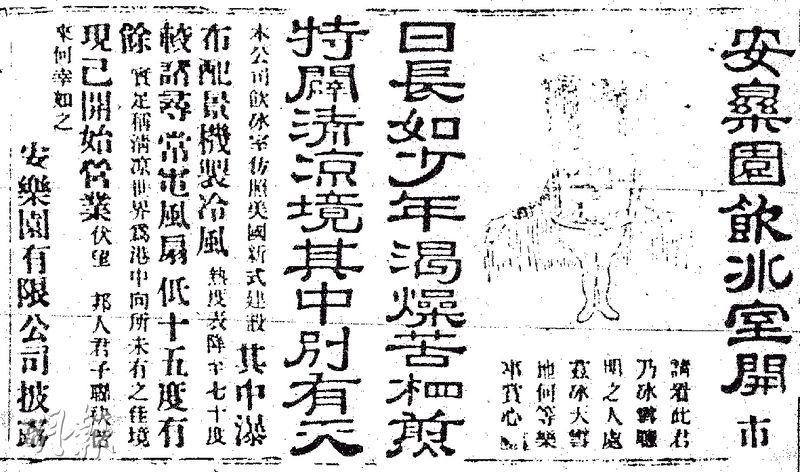 安樂園飲冰室開市
請看此君
乃冰雪聰
明之人處
茲冰天雪
地何等樂
事賞心
日長如少年渴燥苦相煎
特闢清凉境其中別有天
本公司飲冰室仿照美國新式建設其中瀑
布配景機製冷風熱度表降至七十度
較諸尋常電風扇低十五度有
餘實足稱清凉世界為港中向所未有之佳境
現已開始營業伏望 邦人君子聯袂偕
來何幸如之
安樂園有限公司披露
明報